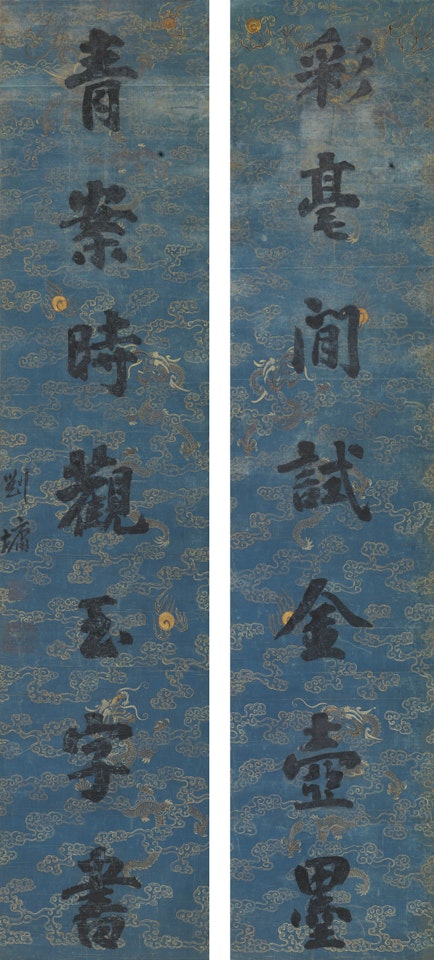 彩毫閒試金壺墨
青案時觀玉字書
劉墉